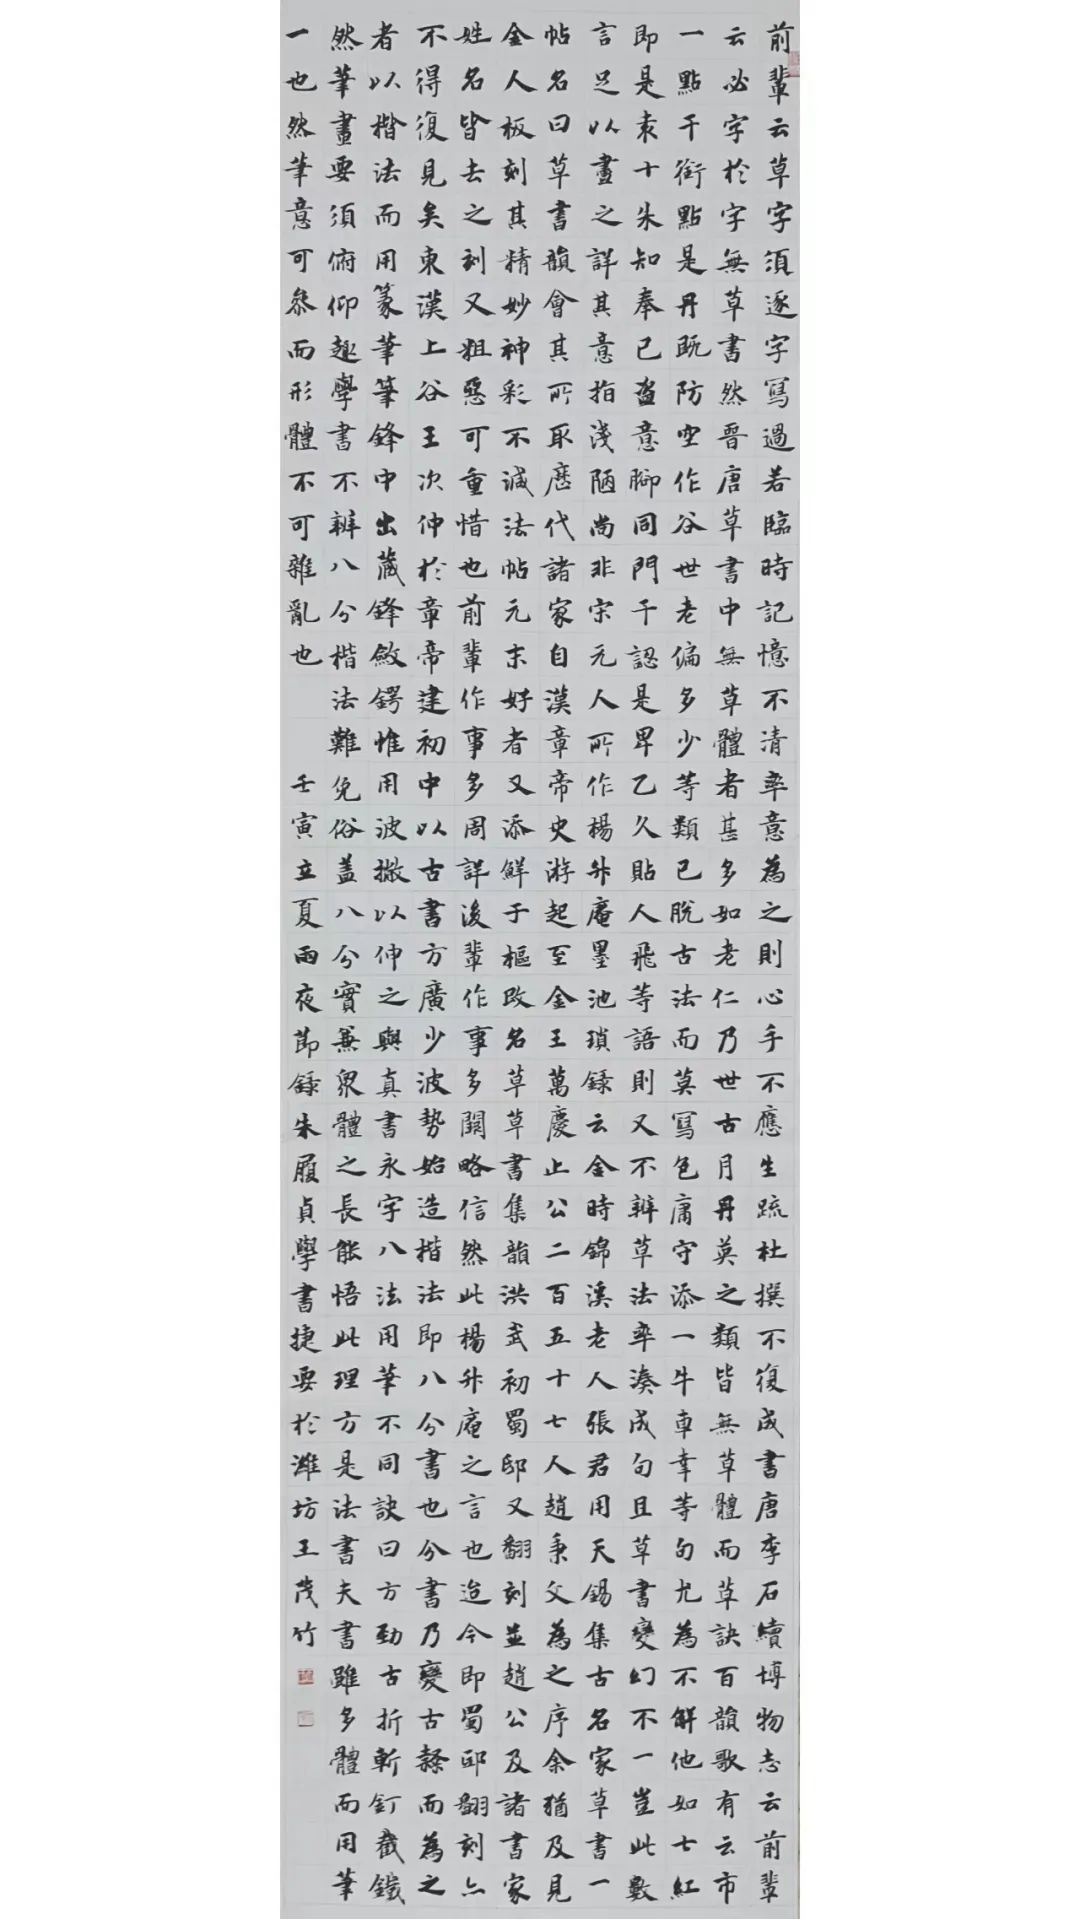 前輩云草字須逐字寫過若臨時記憶不清率意為之則心手不應生疏杜撰不復成書唐李石續博物志云前輩
云必字於字無草書然晉唐草書中無草體者甚多如老仁乃世古月丹英之類皆無草體而草訣百韻歌有云市
一點干銜點是丹既防空作谷世老偏多少等類已脫古法而莫寫包庸守添一牛車幸等句尤為不解他如七紅
即是袁十朱知奉已盔意腳同門干認是卑乙久貼人飛等語則又不辨草法率湊成句且草書變幻不一豈此數
言足以盡之詳其意指淺陋尚非宋元人所作楊升庵墨池瑣錄云金時錦溪老人張君用天錫集古名家草書一
帖名曰草書韻會其所取歷代諸家自漢章帝史游起至金王萬慶止公二百五十七人趙秉文為之序余猶及見
金人板刻其精妙神彩不減法帖元末好者又添鮮于樞改名草草書集韻洪武初蜀邸又翻刻並趙公及諸書家
姓名皆去之刻又粗惡可重惜也前輩作事多周詳後輩作事多闕略信然此楊升庵之言也迨今即蜀邸翻刻亦
不得復見矣東漢上谷王次仲於章帝建初中以古書方廣少波勢始造楷法即八分書也分書乃變古隸而為之
者以楷法而用篆筆筆鋒中出藏鋒斂鍔惟用波撇以伸之與真書永字八法用筆不同訣曰方勁古折斬釘截鐵
然筆畫要須俯仰趣學書不辨八分楷法難免俗蓋八分實兼眾體之長能悟此理方是法書夫書雖多體而用筆
一也然筆意可參而形體不可雜亂也 壬寅立夏雨夜節錄朱履貞學書捷要於濰坊王茂竹